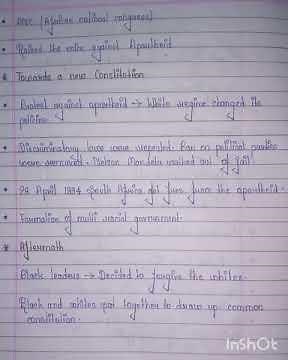 • ANC (African national congress)
• Raised the voice against Apartheid
* Towards a new Constitution
• Protest against apartheid → White regime changed its policies.
• Discriminatory laws were repealed. Ban on political parties were removed. Nelson Mandela walked out of jail.
• 26 April 1994 → South Africa got free from the apartheid.
• Formation of multi racial government.
* Aftermath
Black leaders → Decided to forgive the whites.
Black and whites sat together to draw up common constitution.
InShOt